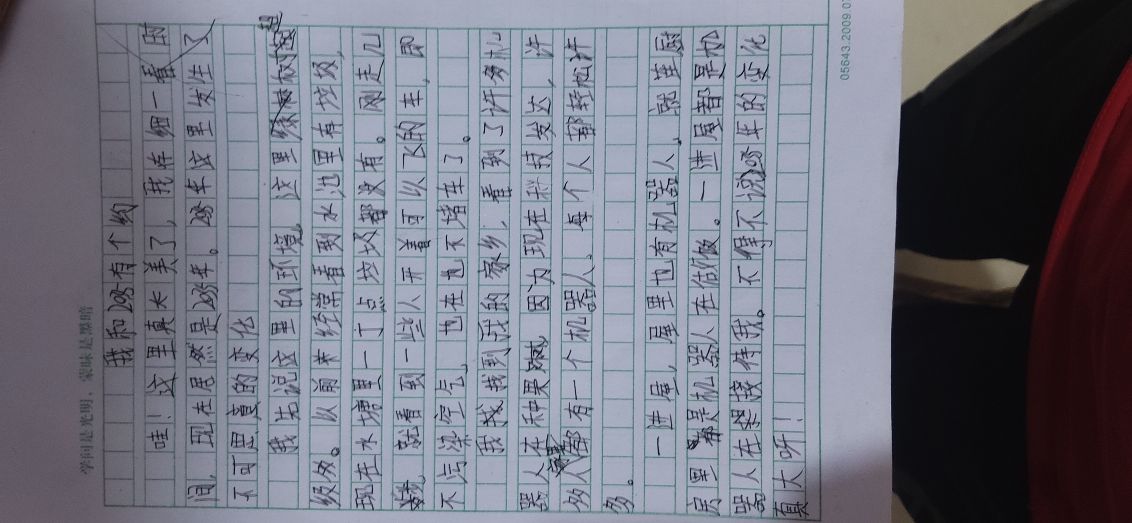 学问是光明，蒙昧是黑暗
我和2035有个约
哇！这里真水美了，我在细一看时
间，现在居然是2035年。2035年这里发生了
不可思意的变化
我先说这里的环境，这里
级多。以前来经常看到水池里有垃圾，
现在水塘里一丁点垃圾都没有。刚走几
就看到一些人开着可以飞的车，即
不污染空气，也在也不堵车了。
我找到我的家乡，看到了许多机
器人在种果蔬，因为现在科技发达，许
多人都有一个机器人。每个人都轻松许
多。
一进屋，屋里也有机器人，就连厨
房里都是机器人在做饭。一进屋都是机
器人在来接待我。不得不说2035年的变化
真大呀！
05643.2009.07